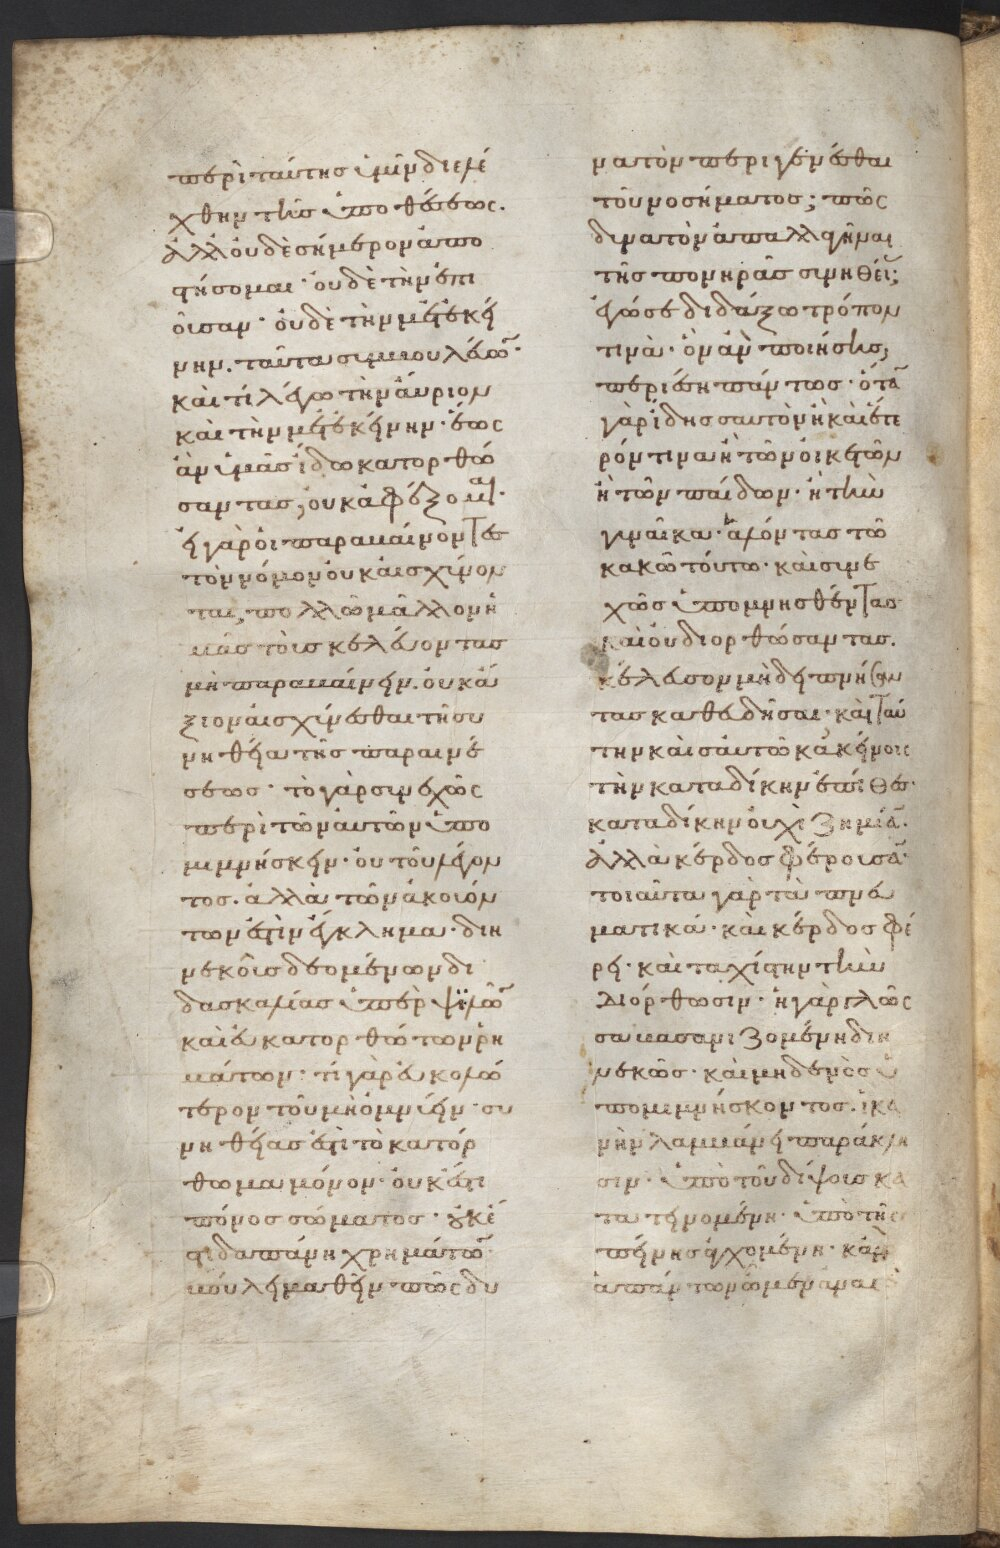 περὶ ταύτης ὑμῖν διελέ
χθην τῆς ὑποθέσεως.
ἀλλ οὐδὲ σήμερον ἀπο
στήσομαι· οὐδὲ τὴν ἐπι
οῦσαν· οὐδὲ τὴν μετ ἐκεί
νην. ταῦτα συμβουλεύῶ·
καὶ τί λέγω τὴν αὔριον
καὶ τὴν μετ ἐκείνην· ἕως
ἂν ὑμᾶς ἴδω κατορθώ
σαντας, οὐκ ἀφέξομαι·
εἰ γὰρ οἱ παραβαίνοντες
τὸν νόμον οὐκ αἰσχύνον
ται, πολλῶ μᾶλλον ἡ
μᾶς τοὺς κελεύοντας
μὴ παραβαίνειν. οὐκ ἄ
ξιον αἰσχύνεσθαι τῆ συ
νηθεία τῆς παραινέ
σεως· τὸ γὰρ συνεχῶς
περὶ τῶν αὐτῶν ὑπο
μιμνήσκειν· οὐ τοῦ λέγον
τος. ἀλλὰ τῶν ἀκουόν
των ἐστὶν ἔγκλημα· διη
νεκοῦς δεομένων δι
δασκαλίας ὑπὲρ ψϊλῶ͂
καὶ εὐκατορθώτων ῥη
μάτων· τί γὰρ εὐκολώ
τερον τοῦ μὴ ὀμνύειν· συ
νηθείας ἐστὶ τὸ κατόρ
θωμα μόνον· οὐκ ἔστι
πόνος σώματος· οὐκ ἔ
στι δαπάνη χρημάτῶ·
βούλει μαθεῖν πῶς δυ
νατὸν περιγενέσθαι
τοῦ νοσήματος; πῶς
δυνατὸν ἀπαλλαγῆναι
τῆς πονηρᾶς συνηθεί͂;
ἐγώ σε διδάξω τρόπον
τινὰ· ὃν ἂν ποιήσης,
περιέση πάντως· ὅτᾶ
γὰρ ἴδης σαυτὸν ἢ καὶ ἕτε
ρόν τινα ἢ τῶν οἰκετῶν
ἢ τῶν παίδων· ἢ τὴν
γυναῖκα· ἁλόντας τῶ
κακῶ τούτω· καὶ συνε
χῶς ὑπομνησθέντας
καὶ οὐ διορθώσαντας.
κέλευσον μὴ δειπνήσαν
τας καθευδῆσαι· καὶ ταύ
την καὶ σαυτῶ κἀκείνοις
τὴν καταδίκην ἐπίθες·
καταδίκην οὐχὶ ζημίᾶ.
ἀλλὰ κέρδος φέρουσᾶ·
τοιαῦτα γὰρ τὰ πνευ
ματικά· καὶ κέρδος φέ
ρει· καὶ ταχίστην τὴν
διόρθωσιν· ἡ γὰρ γλῶς
σα βασανιζομένη διη
νεκῶς· καὶ μηδενὸς ὑ
πομιμνήσκοντος. ἱκα
νὴν λαμβάνει παράκλη
σιν· ὑπὸ τοῦ δίψους κα
τατεινομένη· ὑπὸ τῆς
πείνης ἀγχομένη· κἂν
ἁπάντων ὦμεν ἀναι